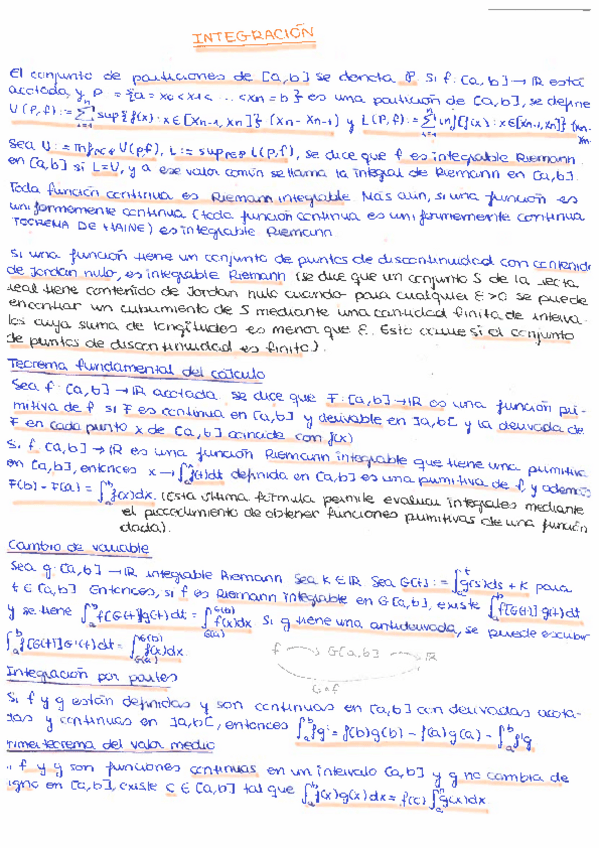 INTEGRACIÓN
El conjunto de particiones de [a,b] se denota P. Si f: [a,b] → ℝ está
acotada, y P = {a = x₀ < x₁ < ... < xₙ = b} es una partición de [a,b], se define
U(P,f) := Σ sup{f(x) : x ∈ [xₙ₋₁, xₙ]} (xₙ - xₙ₋₁) y L(P,f) := Σ inf{f(x) : x ∈ [xₙ₋₁, xₙ]} (xₙ - xₙ
Sea U := inf U(P,f), L := sup L(P,f), se dice que f es integrable Riemann
en [a,b] si L=U, y a ese valor común se llama la integral de Riemann en [a,b].
Toda función continua es Riemann integrable. Más aún, si una función es
uniformemente continua (toda función continua es uniformemente continua
TEOREMA DE HAINE) es integrable Riemann
Si una función tiene un conjunto de puntos de discontinuidad con contenido
de Jordan nulo, es integrable Riemann (se dice que un conjunto S de la recta
real tiene contenido de Jordan nulo cuando para cualquier ε>0 se puede
encontrar un cubrimiento de S mediante una cantidad finita de interva-
los cuya suma de longitudes es menor que ε. Esto ocurre si el conjunto
de puntos de discontinuidad es finito).
Teorema fundamental del cálculo
Sea f: [a,b] → ℝ acotada. se dice que F: [a,b] → ℝ es una función pri-
mitiva de f si F es continua en [a,b] y derivable en ]a,b[ y la derivada de
F en cada punto x de [a,b] coincide con f(x)
Si f: [a,b] → ℝ es una función Riemann integrable que tiene una primitiva
en [a,b], entonces x → ∫ f(t)dt definida en [a,b] es una primitiva de f, y además
F(b) - F(a) = ∫ₐᵇ f(x)dx. (Esta última fórmula permite evaluar integrales mediante
el procedimiento de obtener funciones primitivas de una función
dada).
Cambio de variable
Sea g: [a,b] → ℝ integrable Riemann. Sea K ∈ ℝ. Sea G(t) := ∫ₐᵗ g(s)ds + K para
t ∈ [a,b]. Entonces, si f es Riemann integrable en G[a,b], existe ∫ₐᵇ f[G(t)] g(t)dt
y se tiene ∫ₐᵇ f[G(t)]g(t)dt = ∫ f(x)dx G(b) G(a). Si g tiene una antiderivada, se puede escribir
∫ₐᵇ f[G(t)]G'(t)dt = ∫ f(x)dx G(b) G(a). f → G[a,b] → ℝ
G∘f
Integración por partes
Si f y g están definidas y son continuas en [a,b] con derivadas acota-
das y continuas en ]a,b[, entonces ∫ₐᵇ fg' = f(b)g(b) - f(a)g(a) - ∫ₐᵇ f'g
rimer teorema del valor medio
i f y g son funciones continuas en un intervalo [a,b] y g no cambia de
igno en [a,b], existe c ∈ [a,b] tal que ∫ₐᵇ f(x)g(x)dx = f(c) ∫ₐᵇ g(x)dx